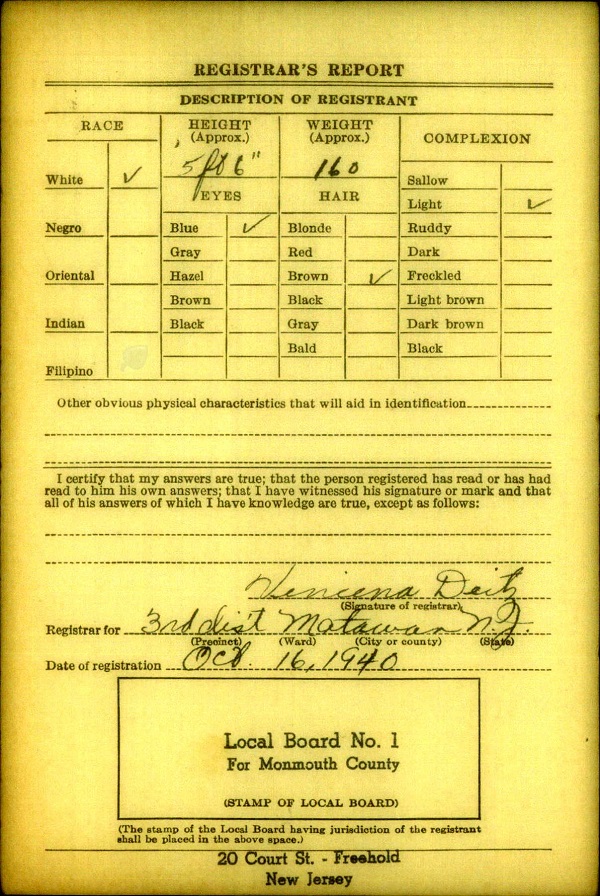 REGISTRAR'S REPORT
DESCRIPTION OF REGISTRANT
RACE
HEIGHT (Approx.)
WEIGHT (Approx.)
COMPLEXION
5 ft 6"
160
White ✓
EYES
HAIR
Sallow
Light ✓
Negro
Blue ✓
Blonde
Ruddy
Gray
Red
Dark
Oriental
Hazel
Brown ✓
Freckled
Brown
Black
Light brown
Indian
Black
Gray
Dark brown
Bald
Black
Filipino
Other obvious physical characteristics that will aid in identification
I certify that my answers are true; that the person registered has read or has had
read to him his own answers; that I have witnessed his signature or mark and that
all of his answers of which I have knowledge are true, except as follows:
Deitz
(Signature of registrar)
Registrar for 3rd dist Matawan N.J.
(Precinct) (Ward) (City or county) (State)
Date of registration Oct. 16, 1940
Local Board No. 1
For Monmouth County
(STAMP OF LOCAL BOARD)
(The stamp of the Local Board having jurisdiction of the registrant
shall be placed in the above space.)
20 Court St. - Freehold
New Jersey